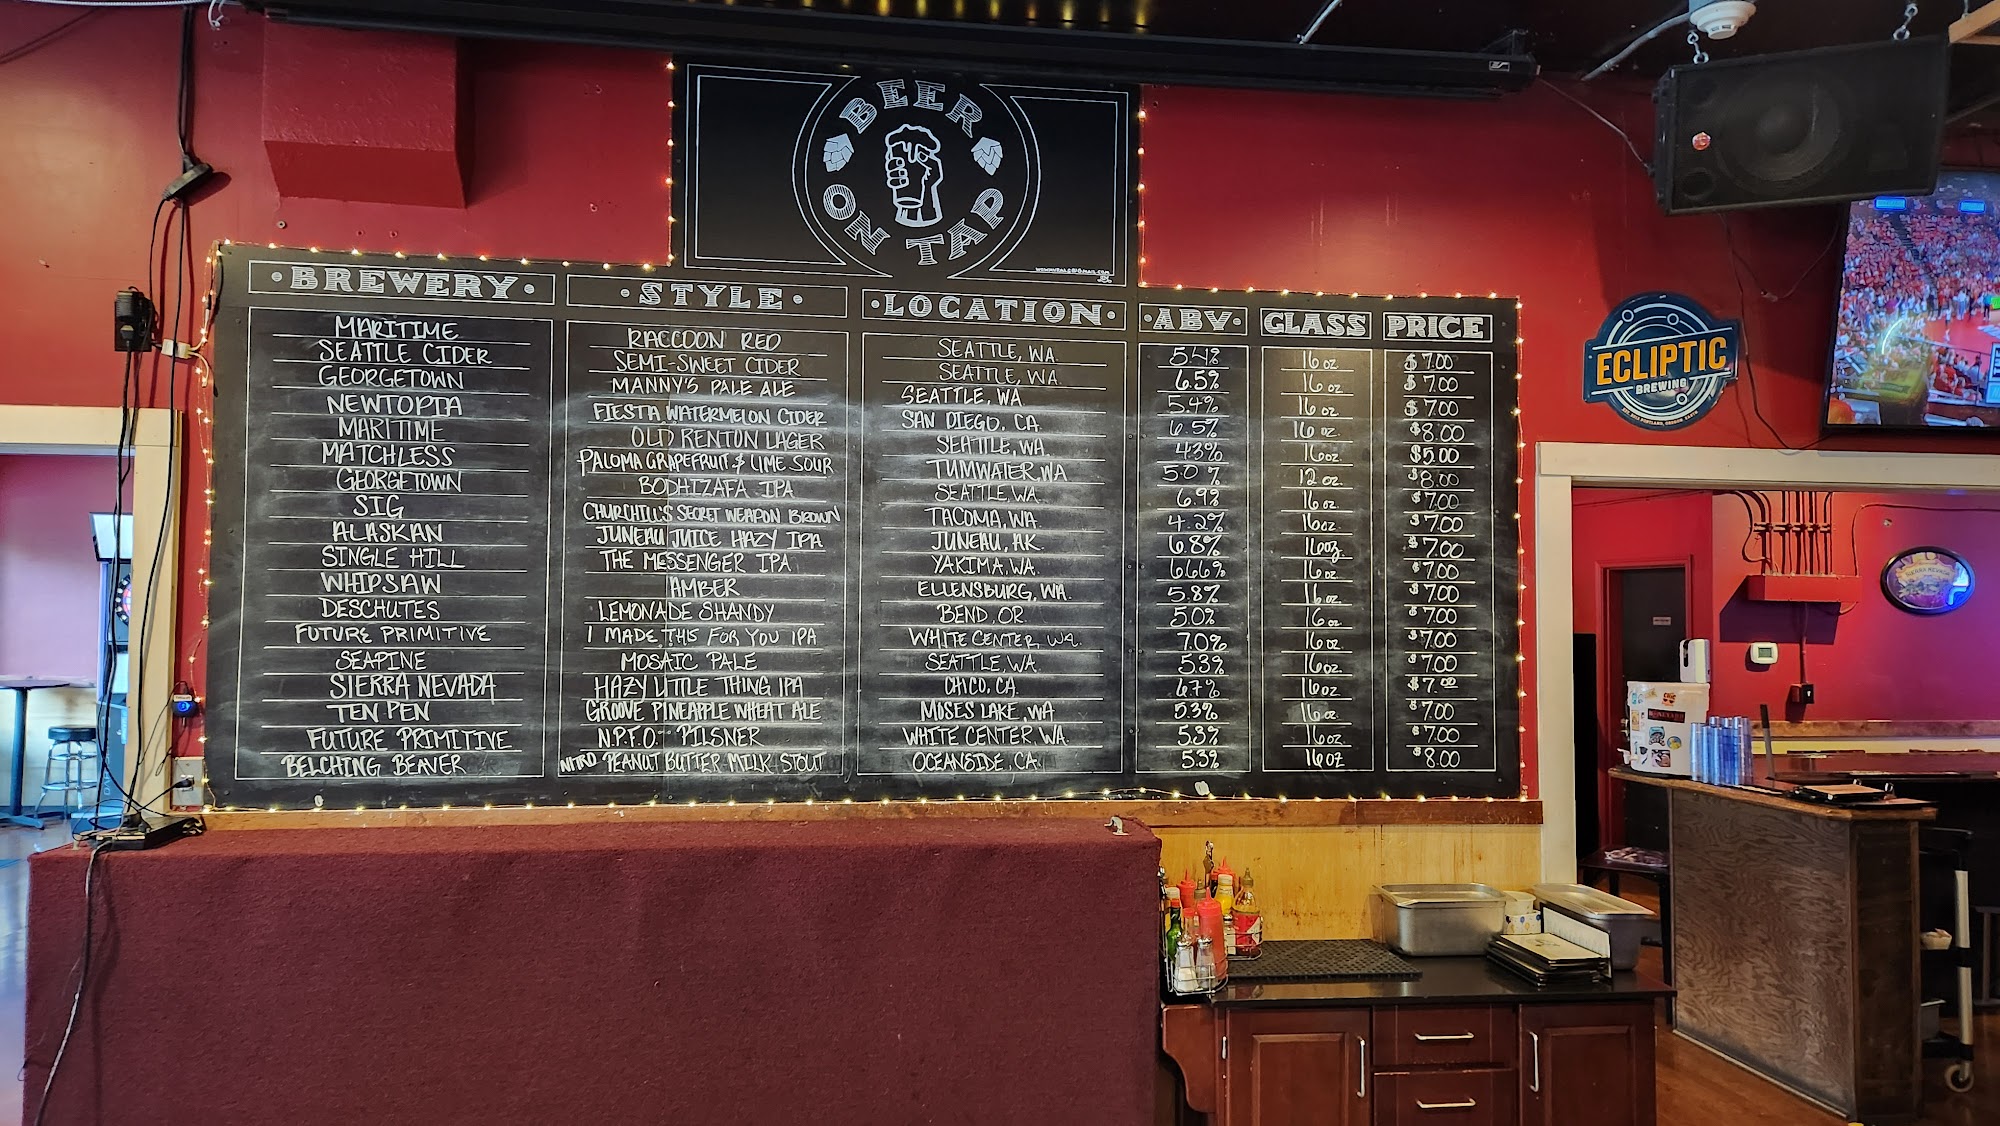 BEER
ON TAP
• BREWERY • • STYLE • • LOCATION • • ABV • GLASS PRICE
MARITIME RACCOON RED SEATTLE, WA. 5.4% 16 oz $7.00
SEATTLE CIDER SEMI-SWEET CIDER SEATTLE, WA. 6.5% 16 oz $7.00
GEORGETOWN MANNY'S PALE ALE SEATTLE, WA 5.4% 16 oz $7.00
NEWTOPIA FIESTA WATERMELON CIDER SAN DIEGO, CA. 6.5% 16 oz. $8.00
MARITIME OLD RENTON LAGER SEATTLE, WA. 4.3% 16oz. $5.00
MATCHLESS PALOMA GRAPEFRUIT & LIME SOUR TUMWATER, WA 5.0% 12 oz. $8.00
GEORGETOWN BODHIZAFA IPA SEATTLE, WA. 6.9% 16 oz. $7.00
SIG CHURCHILL'S SECRET WEAPON BROWN TACOMA, WA. 4.2% 16oz. $7.00
ALASKAN JUNEAU JUICE HAZY IPA JUNEAU, AK. 6.8% 16oz. $7.00
SINGLE HILL THE MESSENGER IPA YAKIMA, WA. 6.66% 16 oz $7.00
WHIPSAW AMBER ELLENSBURG, WA. 5.8% 16 oz. $7.00
DESCHUTES LEMONADE SHANDY BEND, OR. 5.0% 16 oz $7.00
FUTURE PRIMITIVE I MADE THIS FOR YOU IPA WHITE CENTER, WA. 7.0% 16 oz $7.00
SEAPINE MOSAIC PALE SEATTLE, WA. 5.3% 16oz. $7.00
SIERRA NEVADA HAZY LITTLE THING IPA CHICO, CA. 6.7% 16oz $7.00
TEN PEN GROOVE PINEAPPLE WHEAT ALE MOSES LAKE, WA 5.3% 16 oz. $7.00
FUTURE PRIMITIVE N.P.F.O. PILSNER WHITE CENTER, WA. 5.3% 16oz. $7.00
BELCHING BEAVER NITRO PEANUT BUTTER MILK STOUT OCEANSIDE, CA. 5.3% 16oz $8.00
ECLIPTIC
BREWING